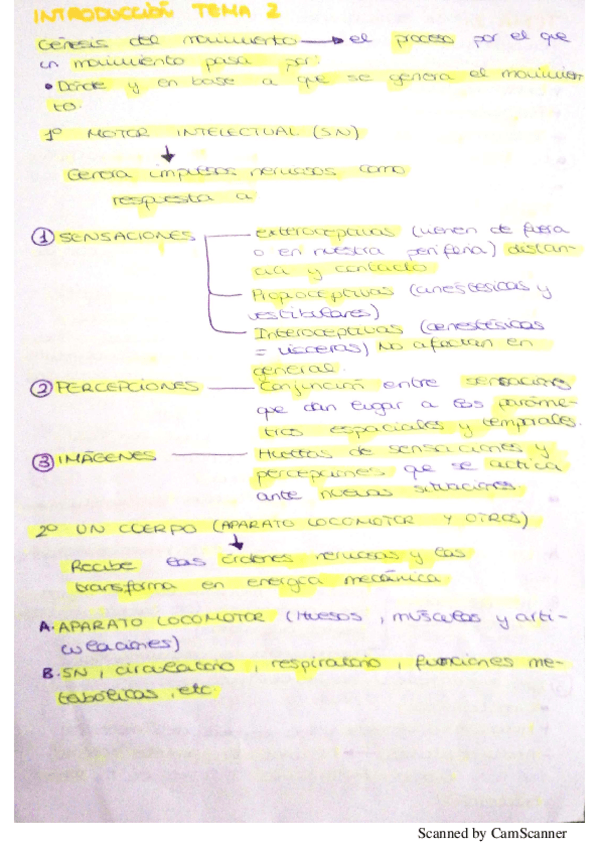 INTRODUCCIÓN TEMA 2
Génesis del movimiento → el proceso por el que
un movimiento pasa por:
• Dónde y en base a que se genera el movimien
to.
1º MOTOR INTELECTUAL (SN)
Genera impulsos nerviosos como
respuesta a
① SENSACIONES
exteroceptivas (vienen de fuera
o en nuestra periferia) distan-
cia y contacto
Propioceptivas (cinestésicas y
vestibulares)
Interoceptivas (cenestésicas
= vísceras) No afectan en
general.
② PERCEPCIONES
Conjunción entre sensaciones
que dan lugar a los paráme-
tros espaciales y temporales.
③ IMÁGENES
Huellas de sensaciones y
percepciones que se activa
ante nuevas situaciones.
2º UN CUERPO (APARATO LOCOMOTOR Y OTROS)
Recibe las órdenes nerviosas y las
transforma en energía mecánica.
A. APARATO LOCOMOTOR (Huesos, músculos y arti-
culaciones)
B. SN, circulatorio, respiratorio, funciones me-
tabólicas, etc.
Scanned by CamScanner